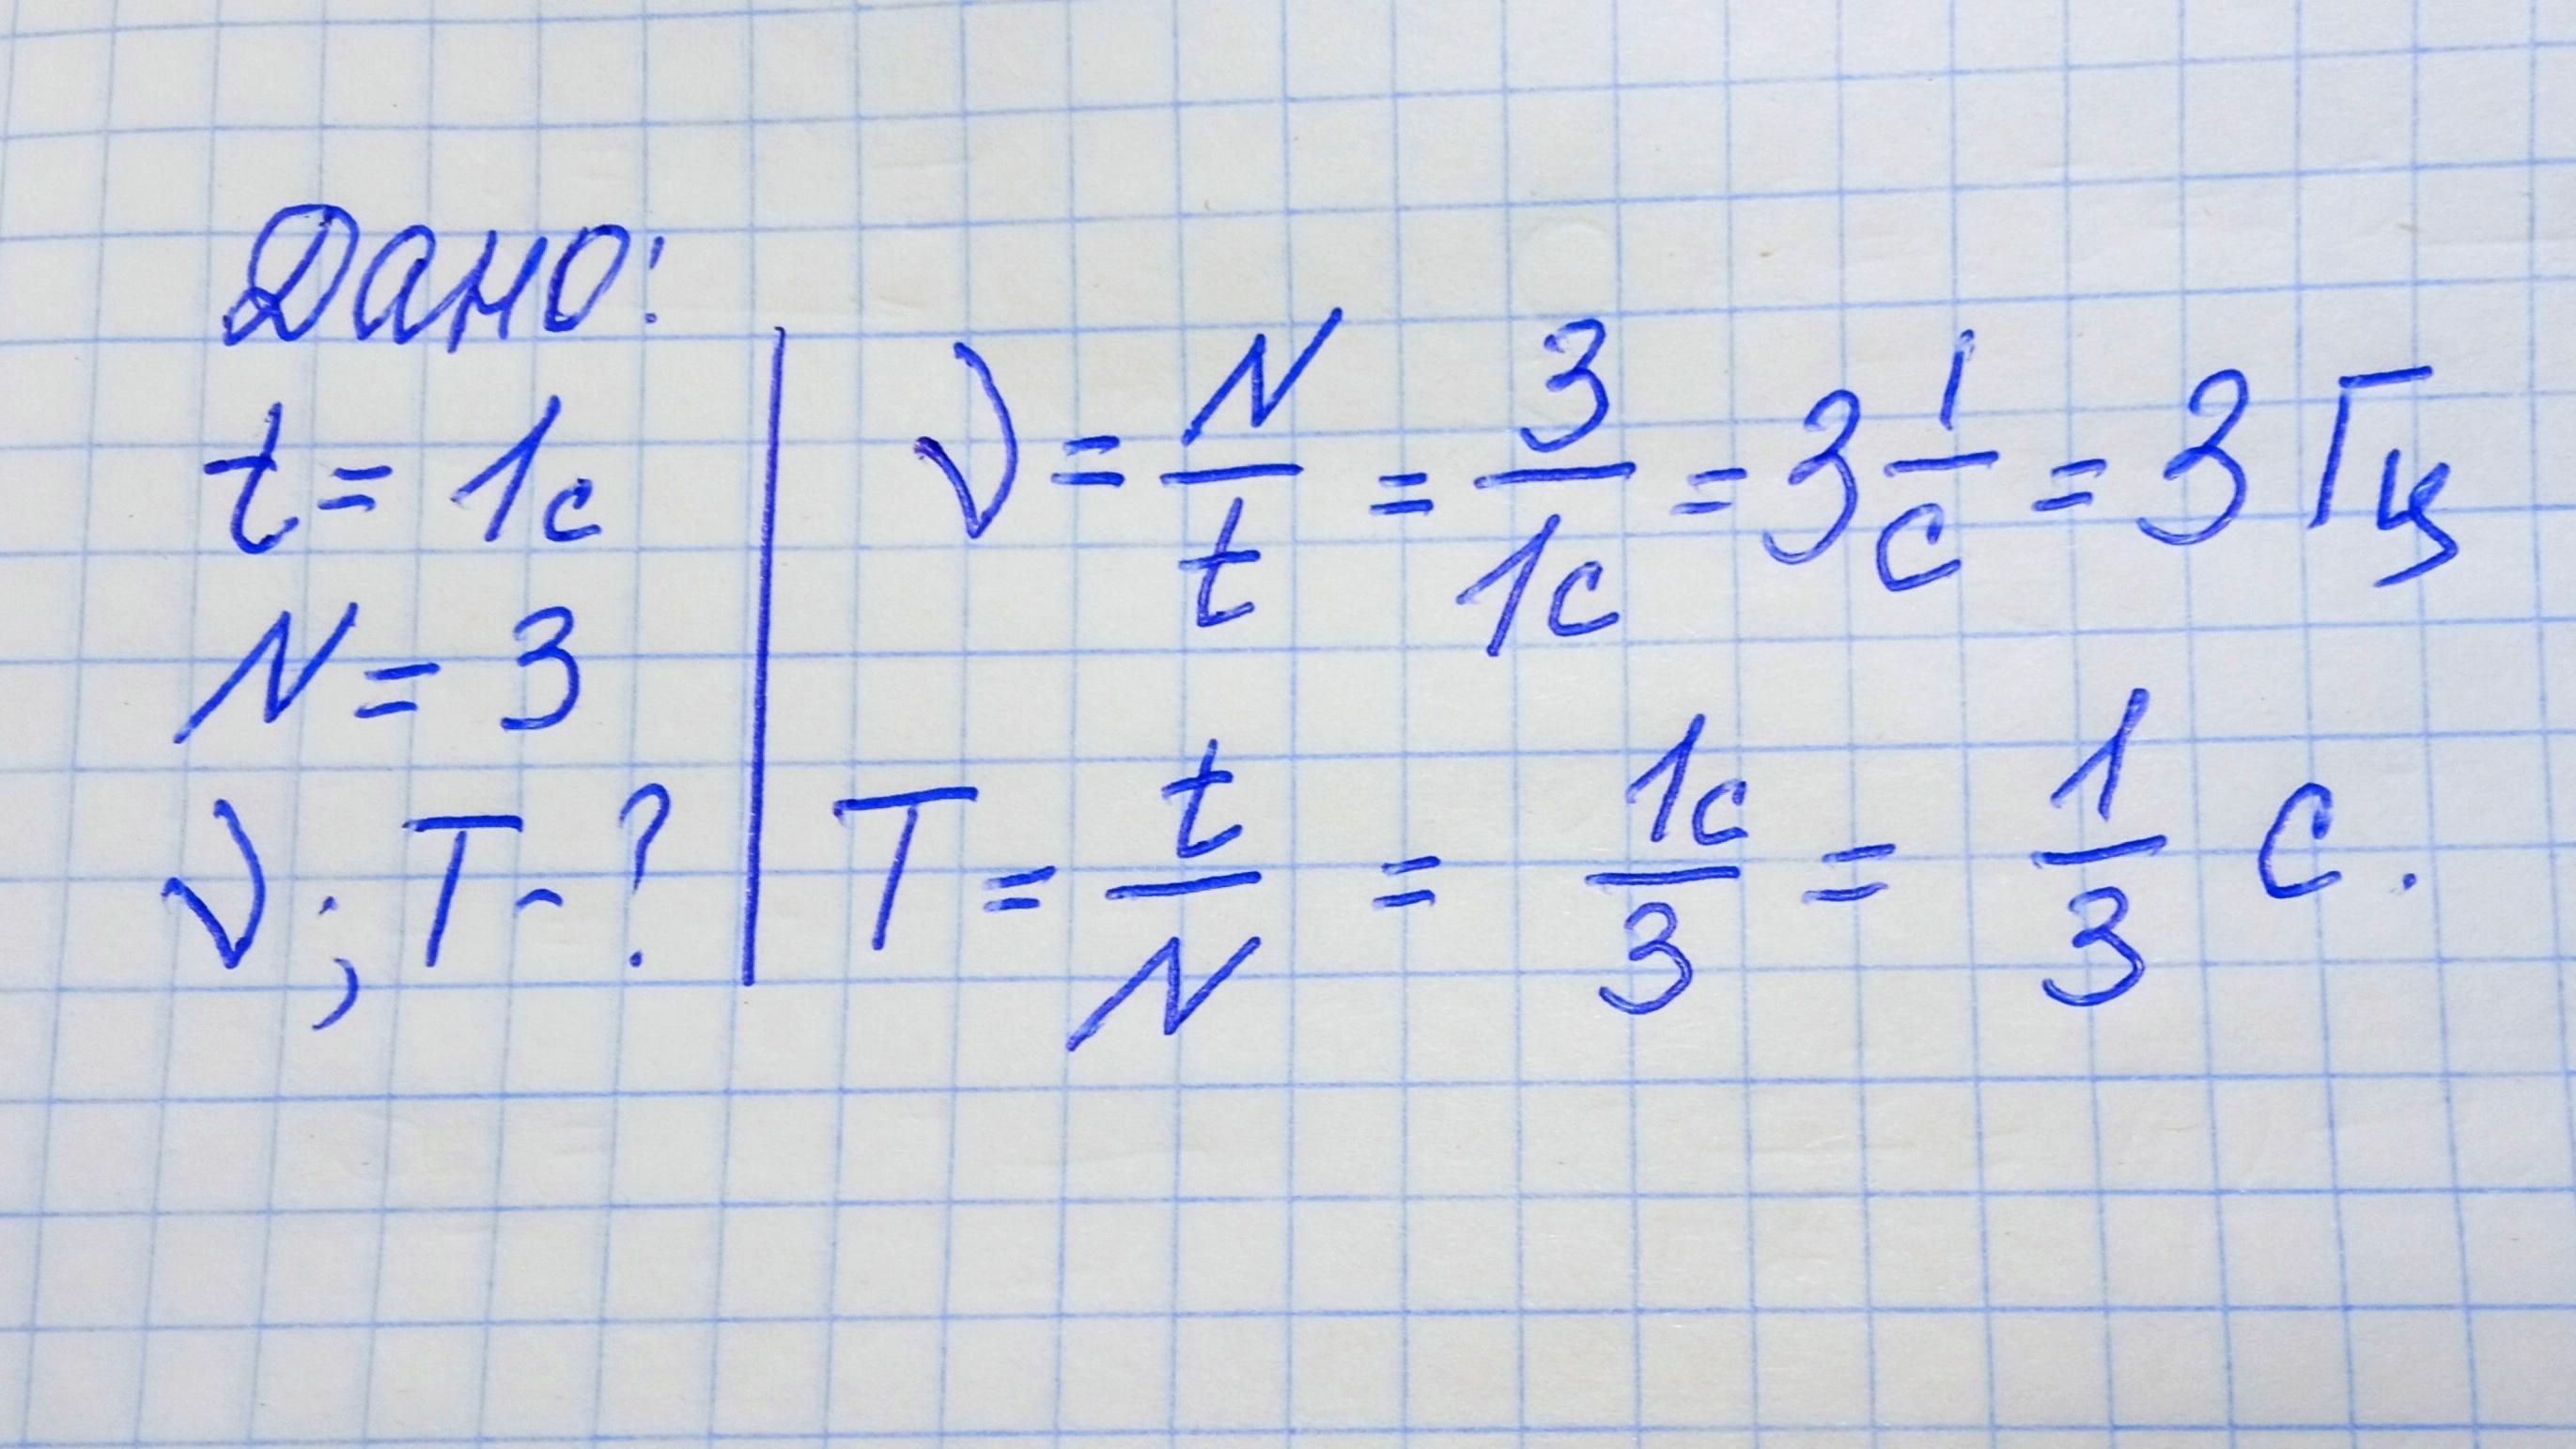 Дано:
t = 1с
N = 3
ν; T - ?
ν = N/t = 3/1с = 3 1/с = 3 Гц
T = t/N = 1с/3 = 1/3 с.